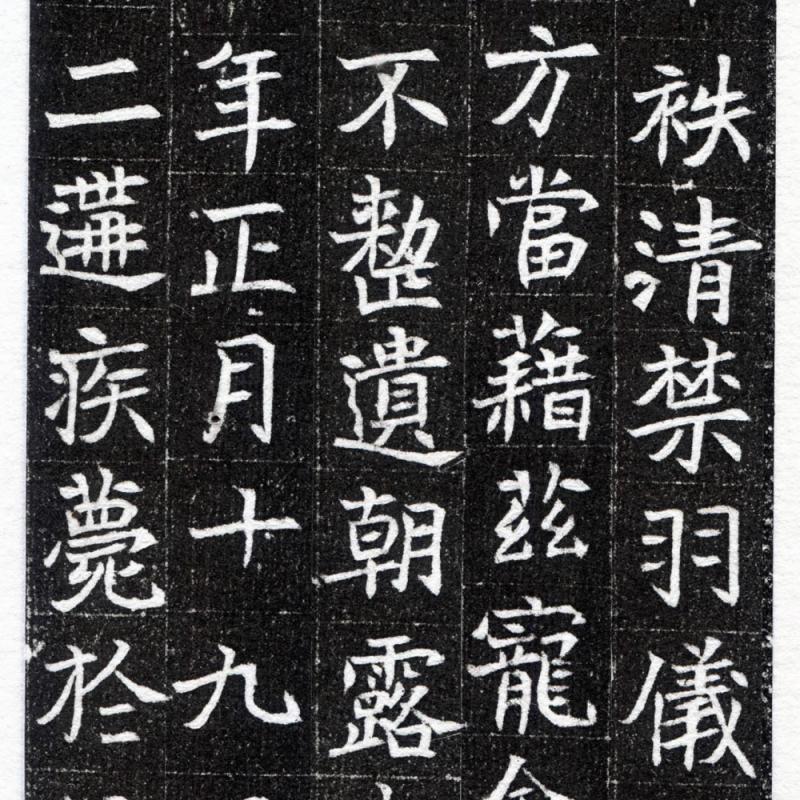 袟清禁羽儀
方當藉茲寵
不整遺朝露
年正月十九
二遘疾薨於